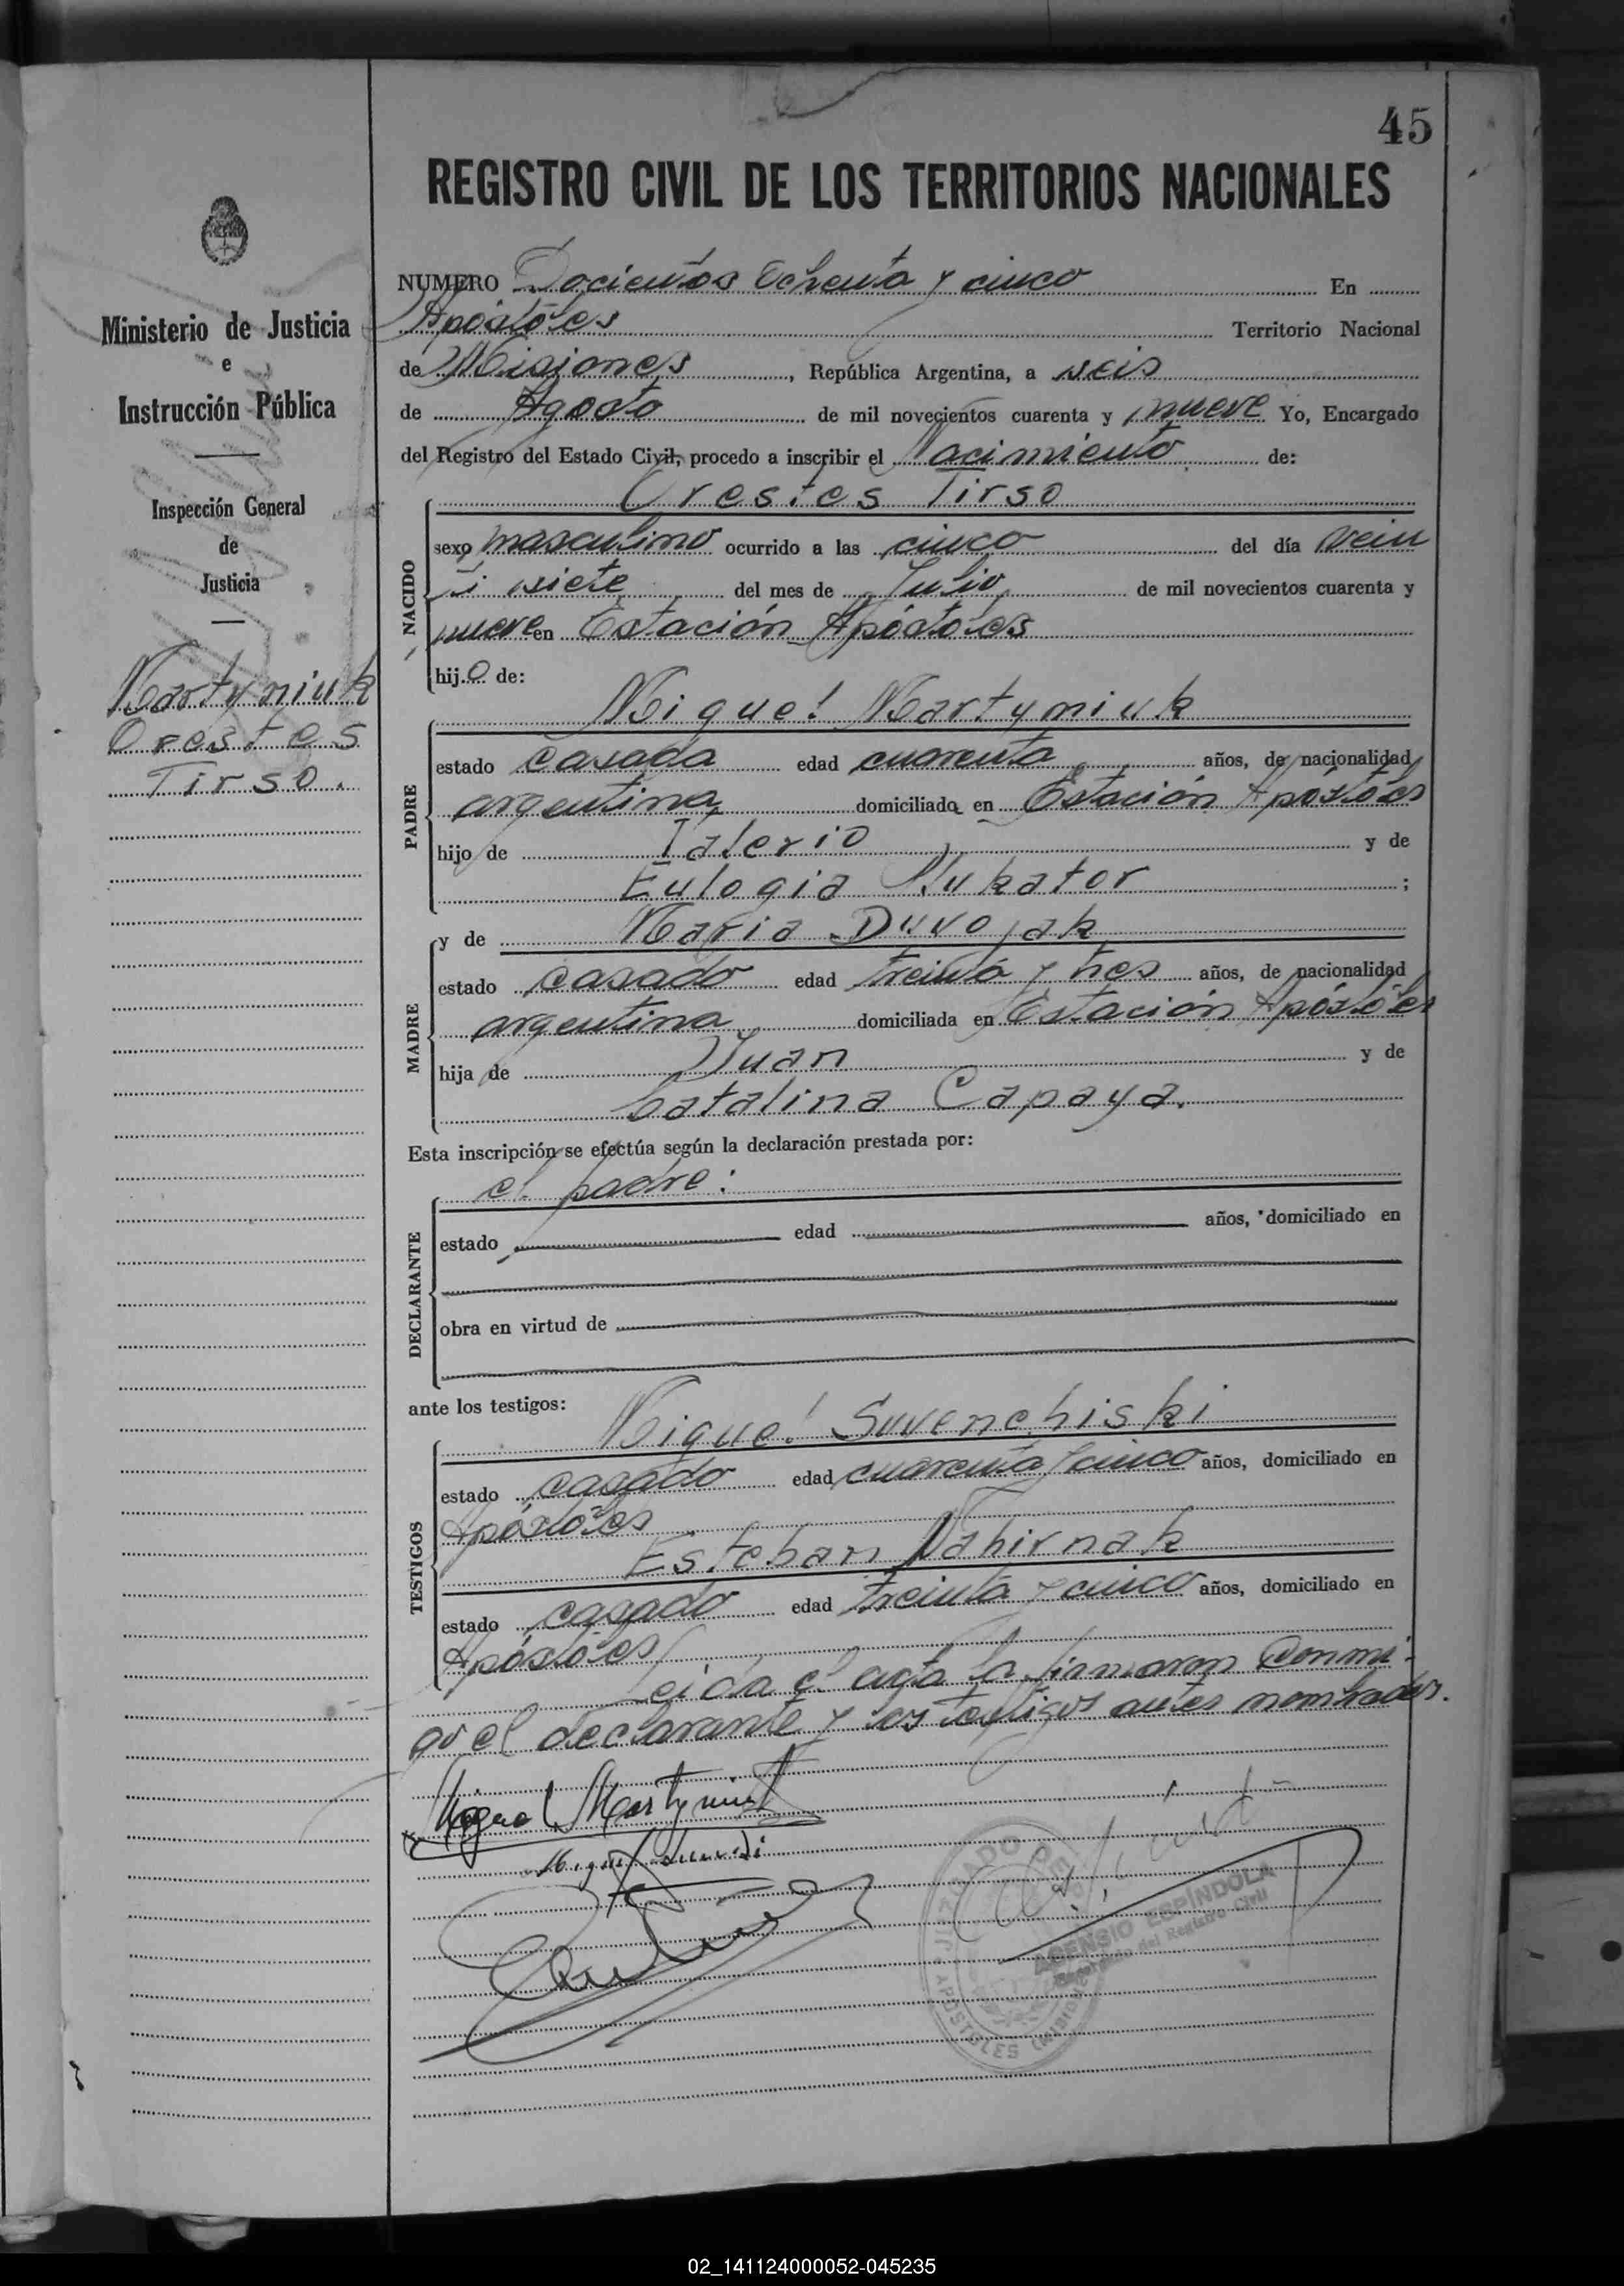 45
REGISTRO CIVIL DE LOS TERRITORIOS NACIONALES
NUMERO Docientos Ochenta y cinco En
Apóstoles Territorio Nacional
de Misiones, República Argentina, a seis
de Agosto de mil novecientos cuarenta y nueve Yo, Encargado
del Registro del Estado Civil, procedo a inscribir el Nacimiento de:
Orestes Tirso
NACIDO
sexo masculino ocurrido a las cinco del día vein
ti siete del mes de Julio de mil novecientos cuarenta y
nueve en Estación Apóstoles
hijo de:
Miguel Martyniuk
PADRE
estado casada edad cuarenta años, de nacionalidad
argentina domiciliado en Estación Apóstoles
hijo de Valerio y de
Eulogia ;
y de Maria
MADRE
estado casado edad treinta y tres años, de nacionalidad
argentina domiciliada en Estación Apóstoles
hija de Juan y de
Catalina Capaya.
Esta inscripción se efectúa según la declaración prestada por:
el padre:
DECLARANTE
estado edad años, domiciliado en
obra en virtud de
ante los testigos:
Miguel Suvenchiski
TESTIGOS
estado casado edad cuarenta y cinco años, domiciliado en
Apóstoles
Esteban Nahirnak
estado casado edad treinta y cinco años, domiciliado en
Apóstoles
Leida el acta la firmaron Conmi-
go el declarante y los testigos antes nombrados.
Miguel Martyniuk
JUZGADO DE
APOSTOLES (MISIONES)
ASENSIO ESPÍNDOLA
Encargado del Registro Civil
Ministerio de Justicia
e
Instrucción Pública
Inspección General
de
Justicia
Martyniuk
Orestes
Tirso.
02_141124000052-045235